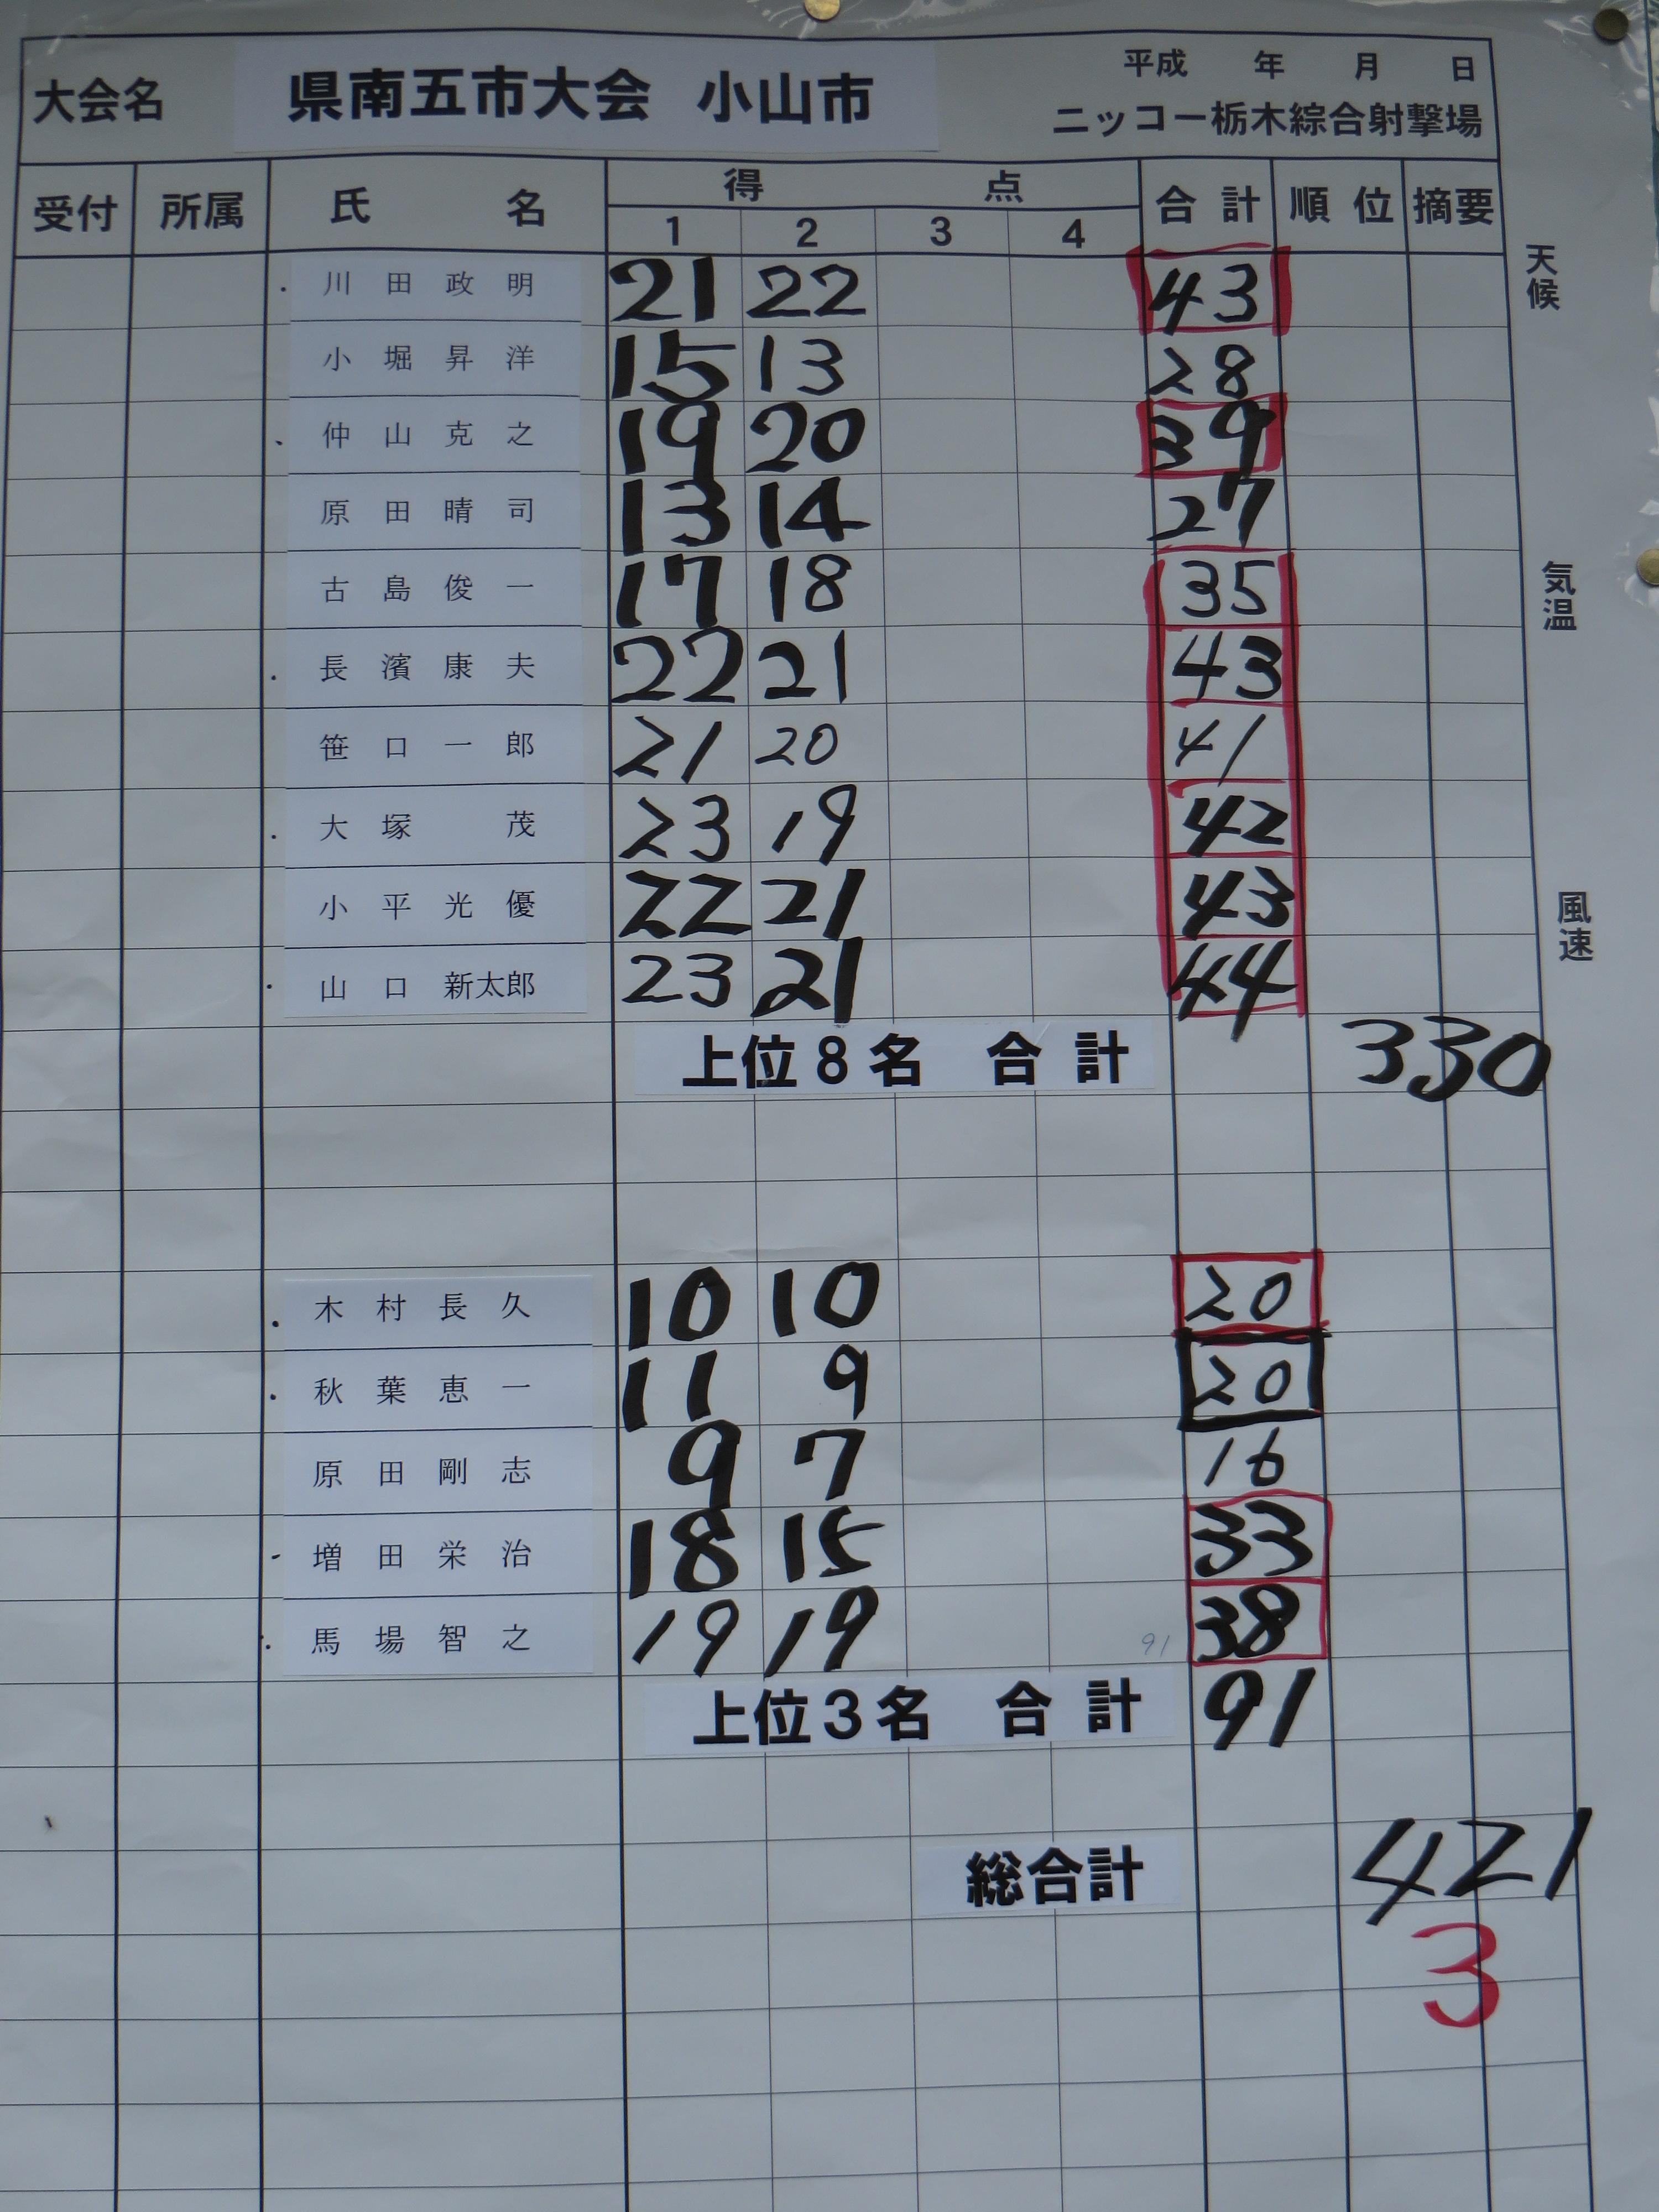 平成 年 月 日
大会名 県南五市大会 小山市
ニッコー栃木綜合射撃場
受付 所属 氏 名 得 点 合計 順位 摘要
1 2 3 4
天候
川田政明 21 22 43
小堀昇洋 15 13 28
仲山克之 19 20 39
原田晴司 13 14 27
気温
古島俊一 17 18 35
長濱康夫 22 21 43
笹口一郎 21 20 41
大塚 茂 23 19 42
風速
小平光優 22 21 43
山口新太郎 23 21 44
上位8名 合計 330
木村長久 10 10 20
秋葉恵一 11 9 20
原田剛志 9 7 16
増田栄治 18 15 33
馬場智之 19 19 91 38
上位3名 合計 91
総合計 421
3